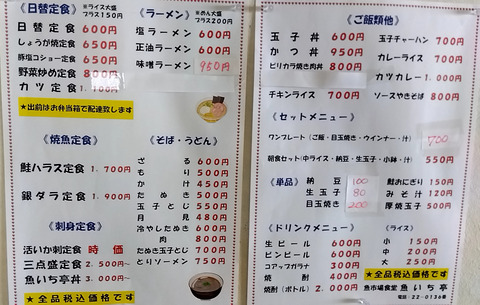 《日替定食》 ※ライス大盛 プラス150円
日替定食 600円
しょうが焼定食 650円
豚塩コショー定食 650円
野菜炒め定食 800円
カツ定食
★出前はお弁当箱で配達致します
《焼魚定食》
鮭ハラス定食 1.700円
銀ダラ定食 1.900円
《刺身定食》
活いか刺定食 時価
三点盛定食 2.500円~
魚いち亭丼 3.000円~
★全品税込価格です
《ラーメン》 ※めん大盛 プラス200円
塩ラーメン 600円
正油ラーメン 600円
味噌ラーメン 950円
《そば・うどん》
ざる 600円
もり 500円
かけ 450円
たぬき 500円
玉子とじ 550円
月見 480円
冷やしたぬき 600円
肉 800円
たぬき玉子とじ 700円
とりソーメン 750円
《ご飯類他》
玉子丼 600円
カツ丼 950円
ピリカラ焼き肉丼 800円
チキンライス 700円
玉子チャーハン 700円
カレーライス 700円
カツカレー 1.000円
ソースやきそば 800円
《セットメニュー》
ワンプレート(ご飯・目玉焼き・ウインナー・汁) 700円
朝食セット(中ライス・納豆・生玉子・小鉢・汁) 550円
《単品》
納豆 100
生玉子 80
目玉焼 200
鮭おにぎり 150円
みそ汁 120円
厚焼玉子 500円
《ドリンクメニュー》
生ビール 600円
ビンビール 600円
コアップガラナ 300円
焼酎 400円
焼酎(ボトル) 2.000円
(ライス)
小 150円
中 200円
大 250円
★全品税込価格です
魚市場食堂 魚いち亭
電話:22-0136番